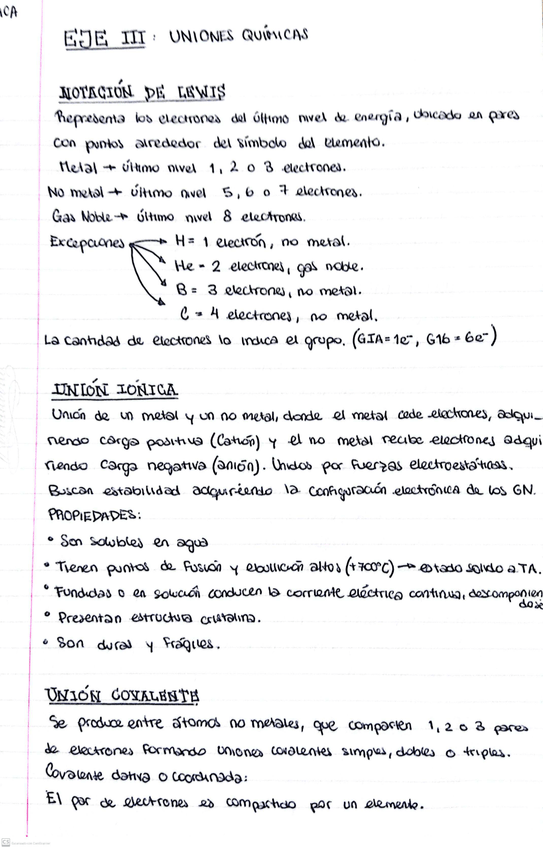 ICA
EJE III: UNIONES QUÍMICAS
NOTACIÓN DE LEWIS
Representa los electrones del último nivel de energía, ubicado en pares
con puntos alrededor del símbolo del elemento.
Metal → último nivel 1, 2 o 3 electrones.
No metal → último nivel 5, 6 o 7 electrones.
Gas Noble → último nivel 8 electrones.
Excepciones → H = 1 electrón, no metal.
→ He = 2 electrones, gas noble.
→ B = 3 electrones, no metal.
→ C = 4 electrones, no metal.
La cantidad de electrones lo indica el grupo. (GIA = 1e⁻, G16 = 6e⁻)
UNIÓN IÓNICA
Unión de un metal y un no metal, donde el metal cede electrones, adqui-
riendo carga positiva (catión) y el no metal recibe electrones adqui
riendo carga negativa (anión). Unidos por fuerzas electroestáticas.
Buscan estabilidad adquiriendo la configuración electrónica de los GN.
PROPIEDADES:
• Son solubles en agua
• Tienen puntos de fusión y ebullición altos (+700°C) → estado solido a TA.
• Fundidas o en solución conducen la corriente eléctrica continua, descomponien
dose
• Presentan estructura cristalina.
• Son duras y frágiles.
UNIÓN COVALENTE
Se produce entre átomos no metales, que comparten 1, 2 o 3 pares
de electrones formando uniones covalentes simples, dobles o triples.
Covalente dativa o coordinada:
El par de electrones es compartido por un elemento.